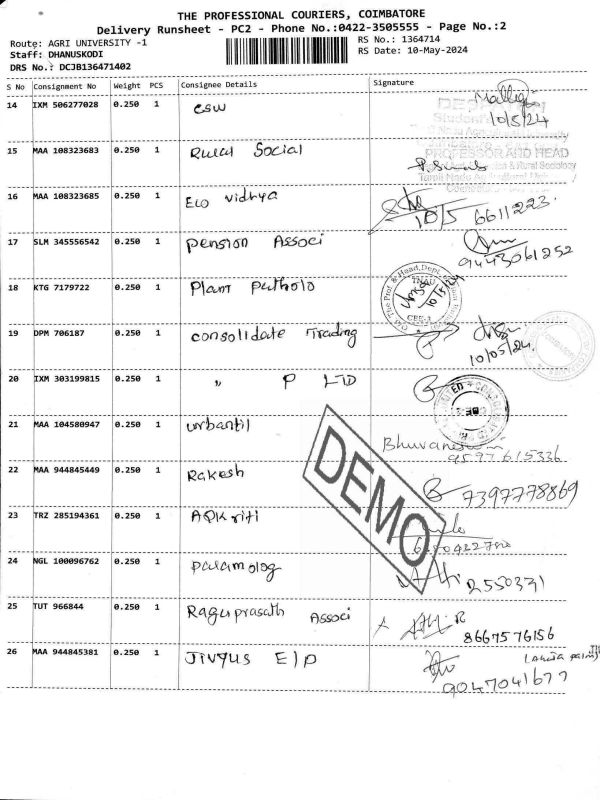 THE PROFESSIONAL COURIERS, COIMBATORE
Delivery Runsheet - PC2 - Phone No.:0422-3505555 - Page No.:2
Route: AGRI UNIVERSITY -1
RS No.: 1364714
Staff: DHANUSKODI
RS Date: 10-May-2024
DRS No.: DCJB136471402
S No Consignment No Weight PCS Consignee Details Signature
14 IXM 506277028 0.250 1 CSW
10/5/24
PROFESSOR AND HEAD
& Rural Sociology
15 MAA 108323683 0.250 1 Rural Social
16 MAA 108323685 0.250 1 Eco vidhya
10/5 6611223
17 SLM 345556542 0.250 1 pension Associ
9443061252
18 KTG 7179722 0.250 1 Plant Patholo
TNAU
CBE-3
10/5/24
19 DPM 706187 0.250 1 consolidate Trading
10/05/24
20 IXM 303199815 0.250 1 " P LTD
21 MAA 104580947 0.250 1 urbantil
Bhuvaneswari
9597615336
22 MAA 944845449 0.250 1 Rakesh
7397778869
DEMO
23 TRZ 285194361 0.250 1
24 NGL 100096762 0.250 1 paramolog
2550331
25 TUT 966844 0.250 1 Raguprasath Associ
8667576156
26 MAA 944845381 0.250 1 Jivqus E/p
9047041677